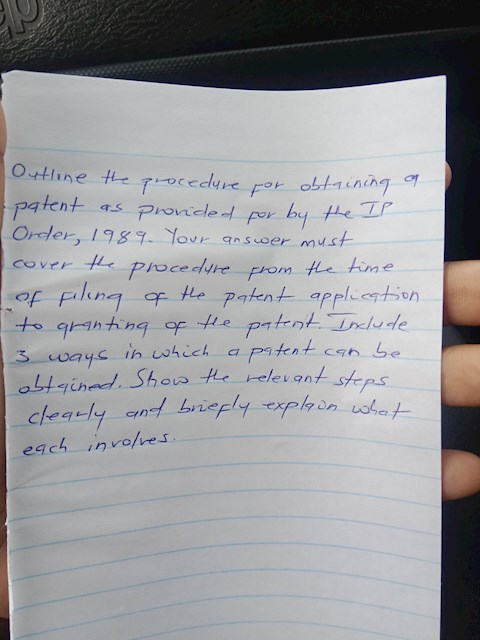 Outline the procedure for obtaining a
patent as provided for by the IP
Order, 1989. Your answer must
cover the procedure from the time
of filing of the patent application
to granting of the patent. Include
3 ways in which a patent can be
obtained. Show the relevant steps
clearly and briefly explain what
each involves.